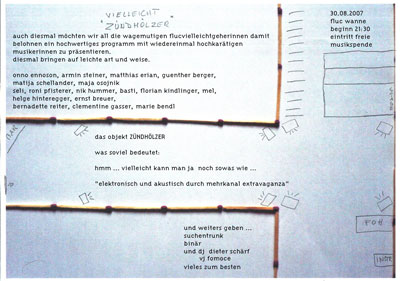 VIELLEICHT
ZÜNDHÖLZER
auch diesmal möchten wir all die wagemutigen flucvielleichtgeherinnen damit
belohnen ein hochwertiges programm mit wiedereinmal hochkarätigen
musikerinnen zu präsentieren.
diesmal bringen auf leichte art und weise.
onno ennoson, armin steiner, matthias erian, guenther berger,
matija schellander, maja osojnik
seli, roni pfisterer, nik hummer, basti, florian kindlinger, mel,
helge hinteregger, ernst breuer,
bernadette reiter, clementine gasser, marie bendl
30.08.2007
fluc wanne
beginn 21:30
eintritt freie
musikspende
das objekt ZÜNDHÖLZER
was soviel bedeutet:
hmm ... vielleicht kann man ja noch sowas wie ...
"elektronisch und akustisch durch mehrkanal extravaganza"
und weiters geben ...
suchentrunk
binär
und dj dieter schärf
vj fomoce
vieles zum besten
FOH